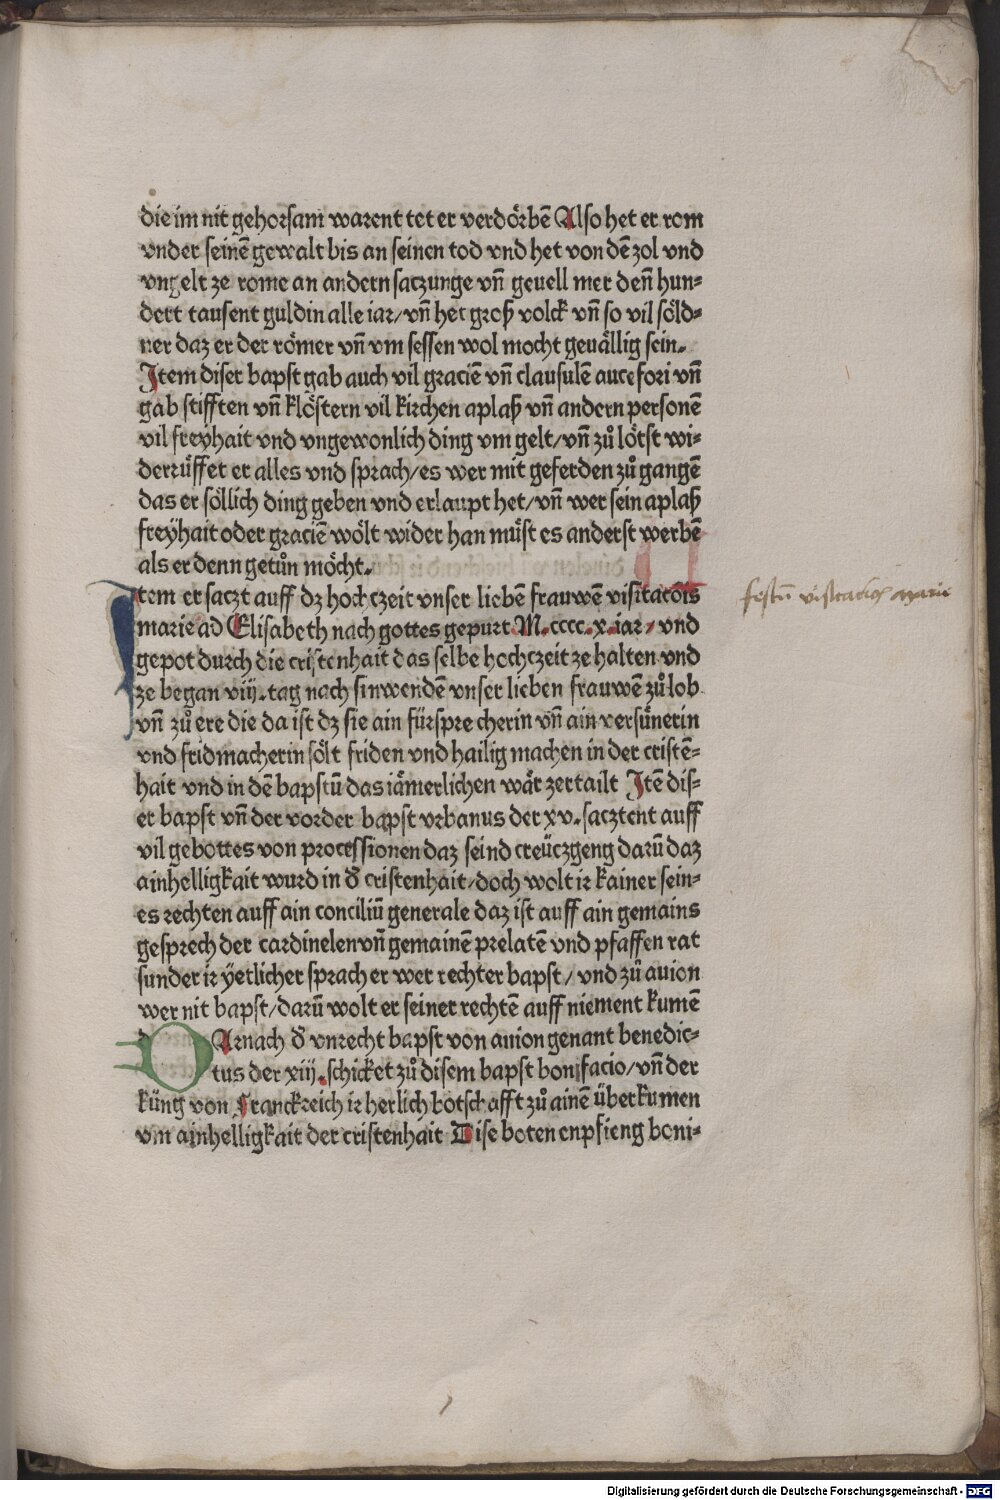 die im nit gehorsam warent tet er verdörbē Also het er rom
vnder seinē gewalt bis an seinen tod vnd het von dē zol vnd
vngelt ze rome an andern saczunge vn̄ geuell mer den̄ hun⸗
dert tausent guldin alle iar/ vn̄ het groß volck vn̄ so vil söld⸗
ner daz er der römer vn̄ vm sessen wol mocht geuällig sein.
Item diser bapst gab auch vil graciē vn̄ clausulē aucefori vn̄
gab stifften vn̄ klöstern vil kirchen aplaß vn̄ andern personē
vil freyhait vnd vngewonlich ding vm gelt/ vn̄ zů lötst wi⸗
derrüffet er alles vnd sprach/ es wer mit geferden zů gangē
das er söllich ding geben vnd erlaupt het/ vn̄ wer sein aplaß
freÿhait oder graciē wölt wider han müst es anderst werbē
als er denn getůn möcht.
Item er saczt auff dz hochczeit vnser liebē frauwē visitacōis
marie ad Elisabeth nach gottes gepurt M.cccc.x.iar/ vnd
gepot durch die cristenhait das selbe hochczeit ze halten vnd
ze began viij.tag nach sinwendē vnser lieben frauwē zů lob
vn̄ zů ere die da ist dz sie ain fürsprecherin vn̄ ain versünerin
vnd fridmacherin sölt friden vnd hailig machen in der cristē⸗
hait vnd in dē bapstū das iämerlichen wär zertailt Itē dis⸗
er bapst vn̄ der vorder bapst vrbanus der xv.sacztent auff
vil gebottes von processionen daz seind creüczgeng darū daz
ainhelligkait wurd in d̄ cristenhait/ doch wolt ir kainer sein⸗
es rechten auff ain conciliū generale daz ist auff ain gemains
gesprech der cardinelen vn̄ gemainē prelatē vnd pfaffen rat
sunder ir ÿetlicher sprach er wer rechter bapst/ vnd zů auion
wer nit bapst/ darū wolt er seiner rechtē auff niement kumē
DArnach d̄ vnrecht bapst von auion genant benedic⸗
tus der xiij.schicket zů disem bapst bonifacio/ vn̄ der
küng von Franckreich ir herlich botschafft zů ainē überkumen
vm ainhelligkait der cristenhait Dise boten enpfieng boni⸗
festū visitacōis marie
Digitalisierung gefördert durch die Deutsche Forschungsgemeinschaft - DFG